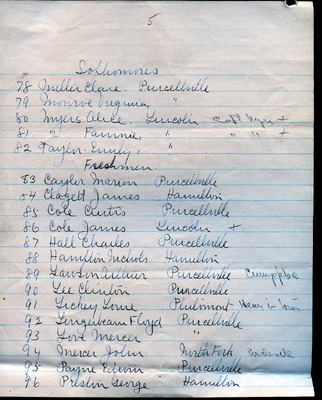 5
Sophomores
78 Miller Clare. Purcellville
79 Monroe Virginia, "
80 Myers Alice. Lincoln +
81 " Fannie, " " " +
82 Taylor Emily, "
Freshmen
83 Caylor Marion Purcellville
84 Clagett James Hamilton
85 Cole Curtis Purcellville
86 Cole James Lincoln +
87 Hall Charles Purcellville
88 Hamilton Nichols Hamilton
89 Lawson Arthur Purcellville
90 Lee Clinton Purcellville
91 Lickey Louie Philomont
92 Lingebeam Floyd Purcellville
93 Love Mercer
94 Mercer John North Fork
95 Payne Edwin Purcellville
96 Preston George Hamilton